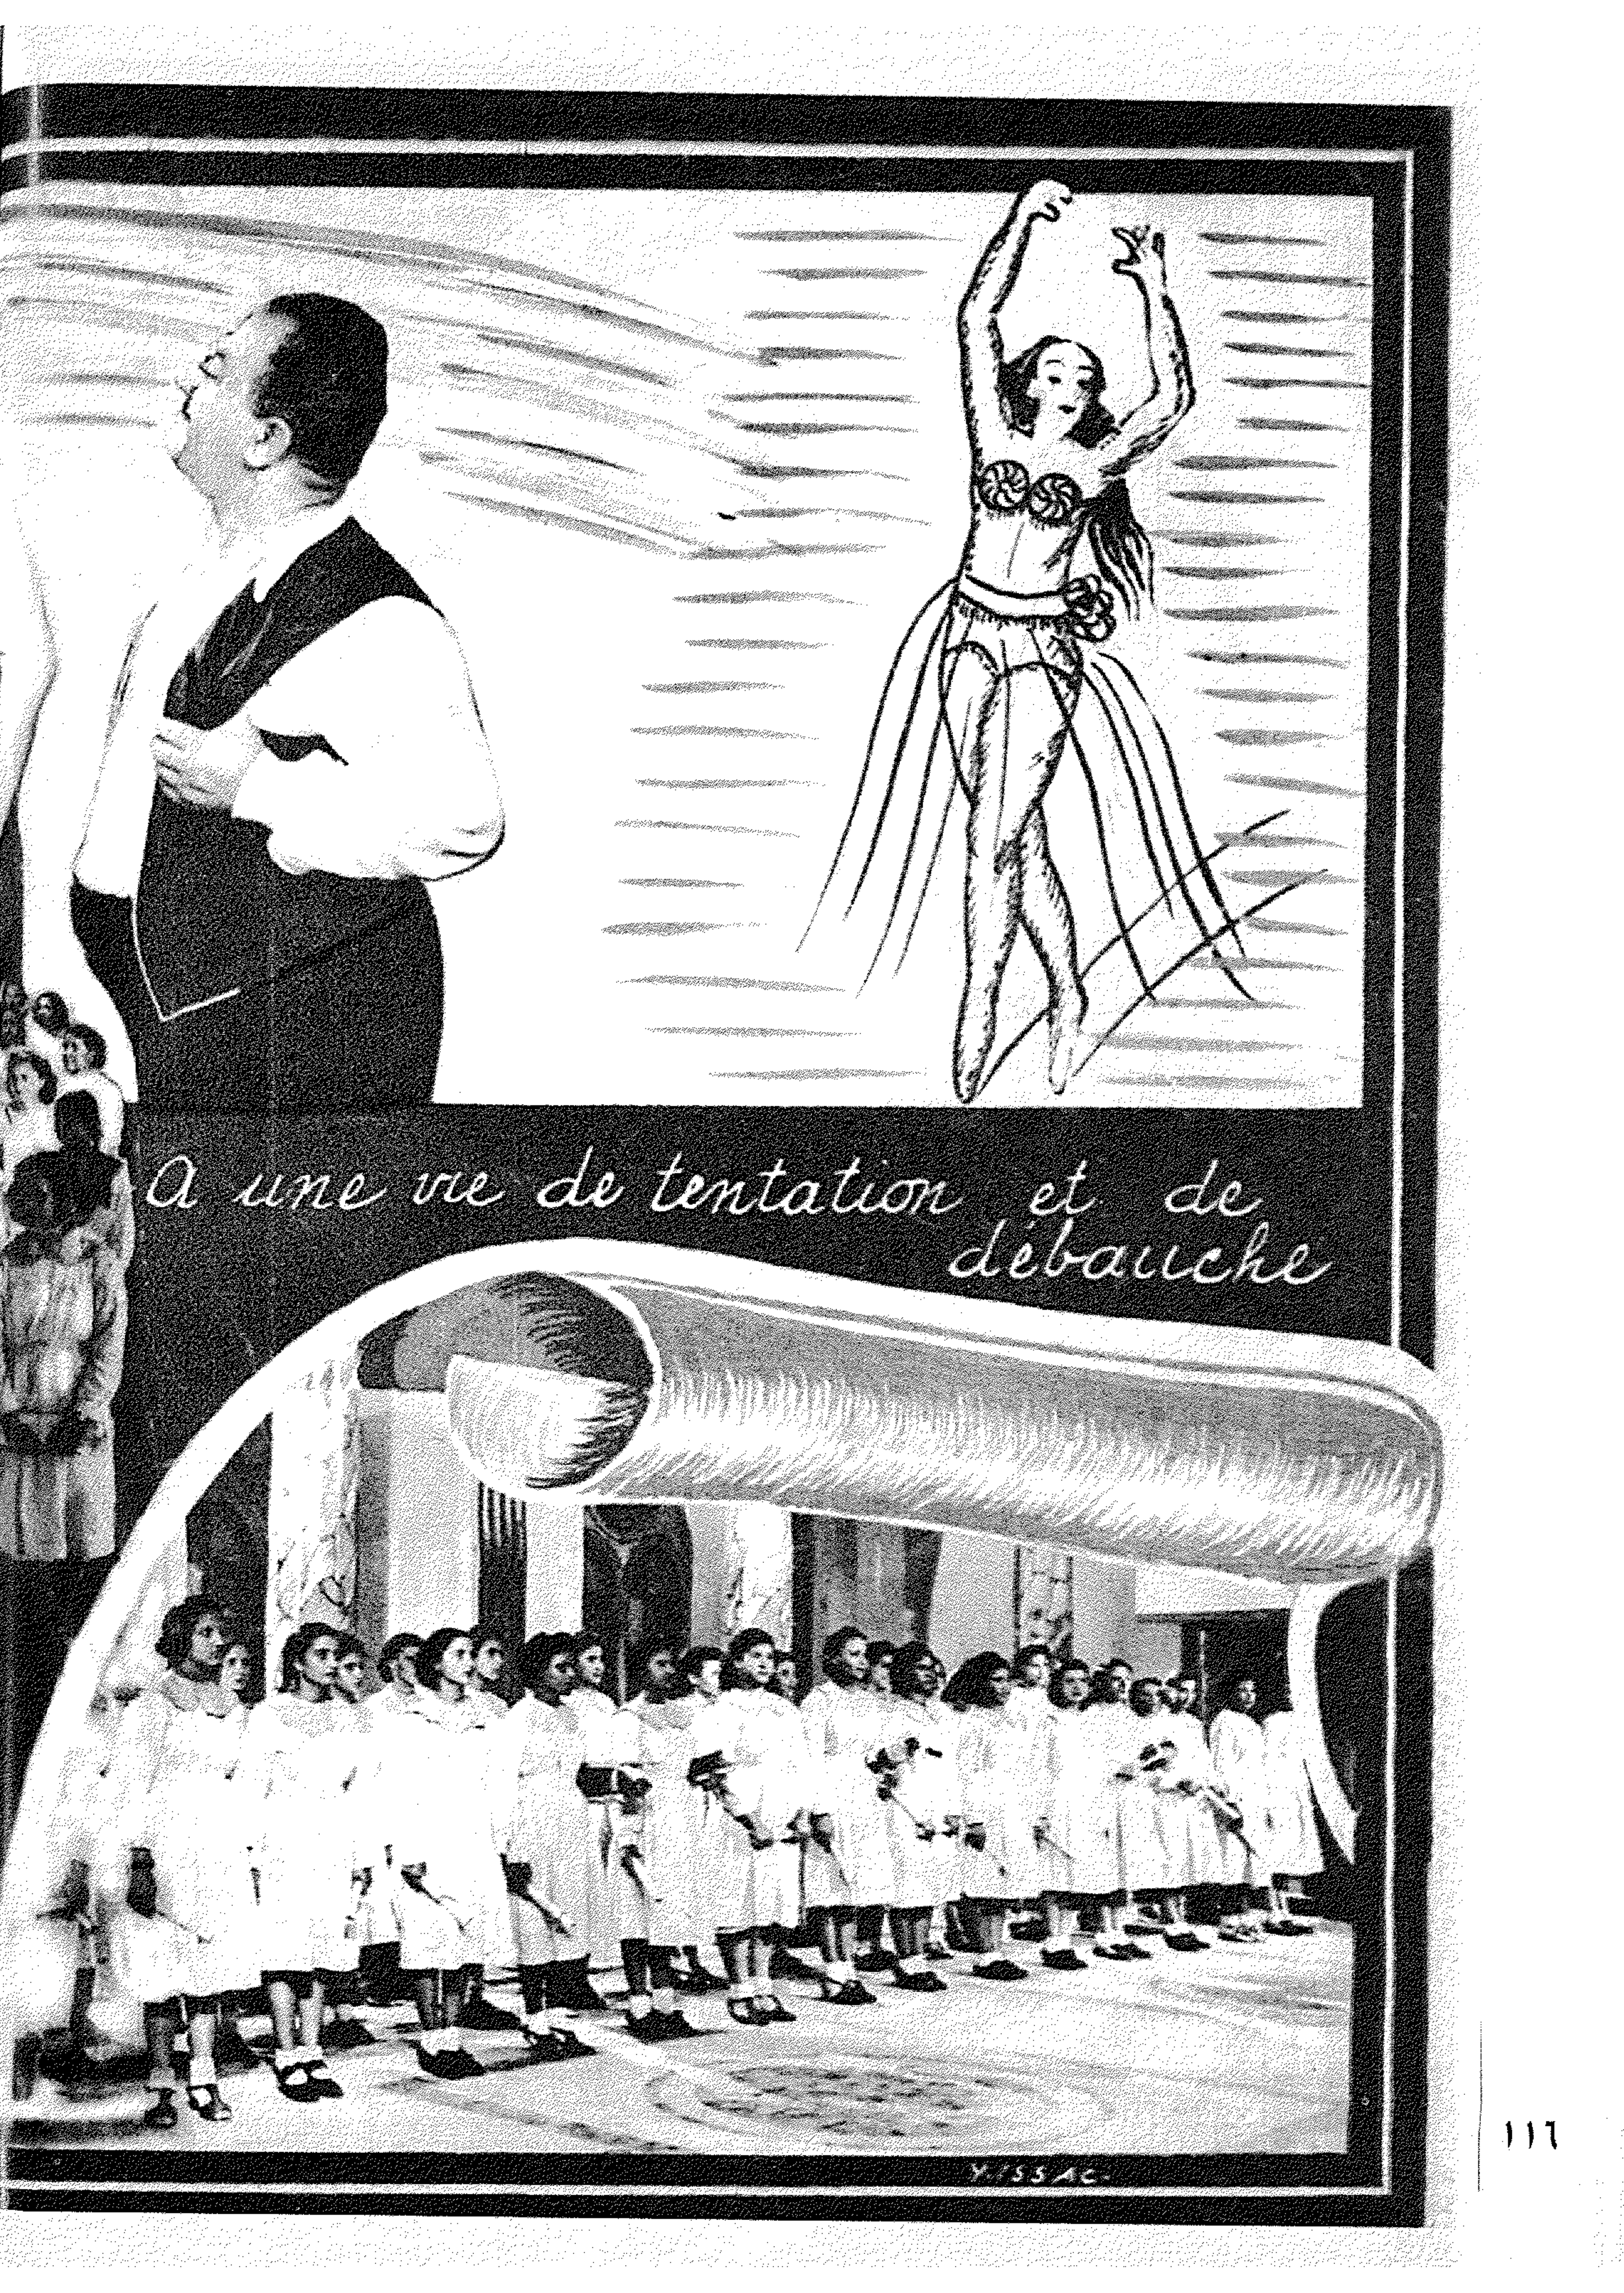 A une vie de tentation et de
débauche
Y. ISSAC-
١١٦